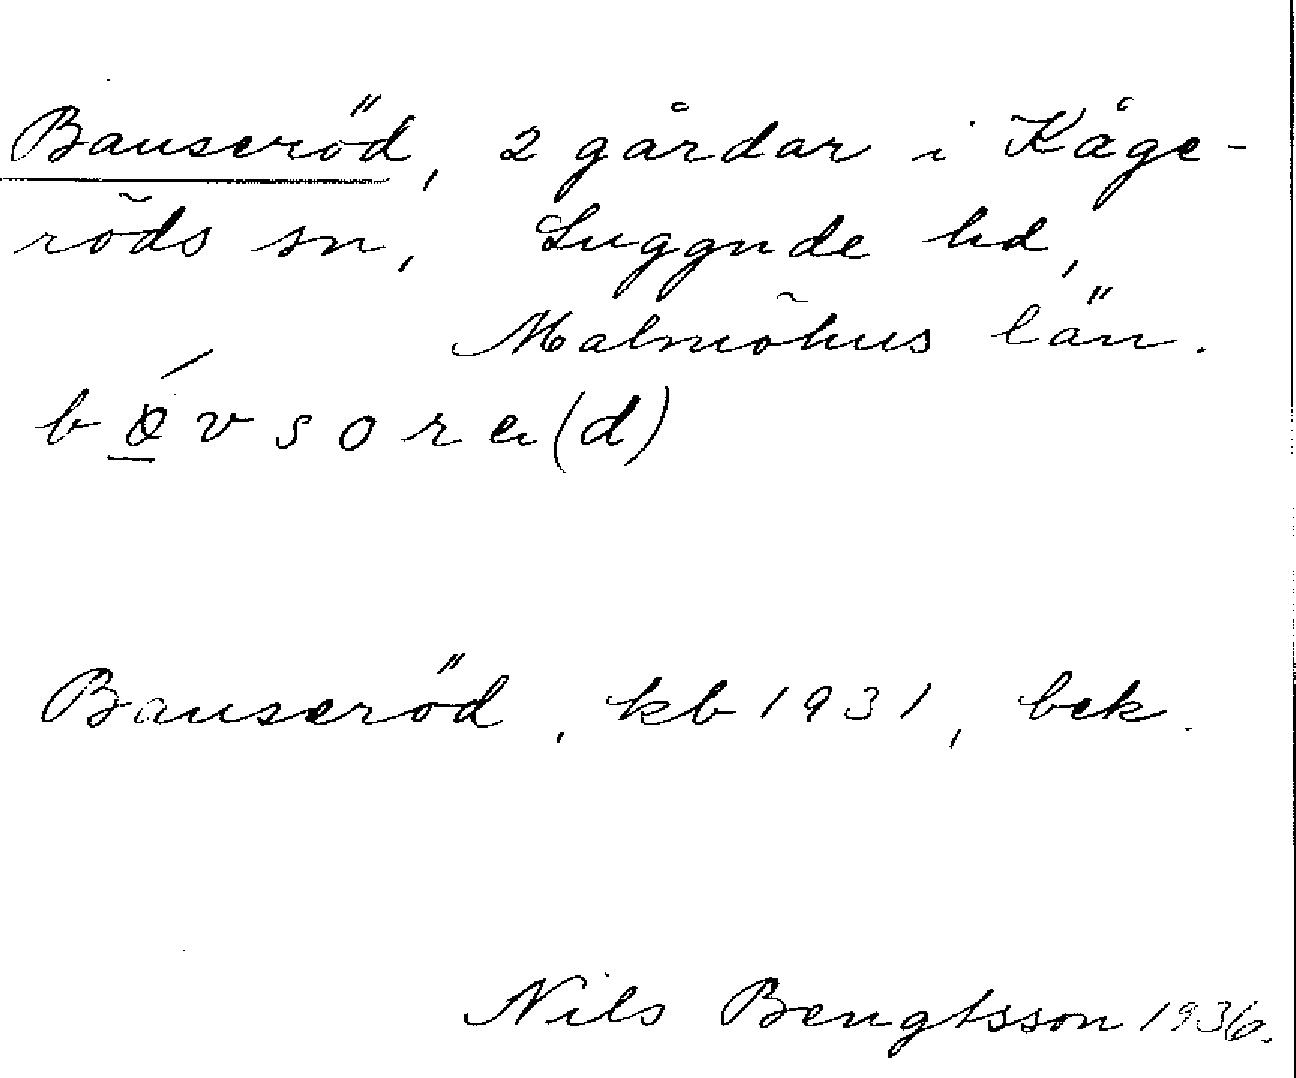 Bauseröd, 2 gårdar i Kåge-
röds sn, Luggude hd,
Malmöhus län.
Bauseröd, kb 1931, bek.
Nils Bengtsson 1936.